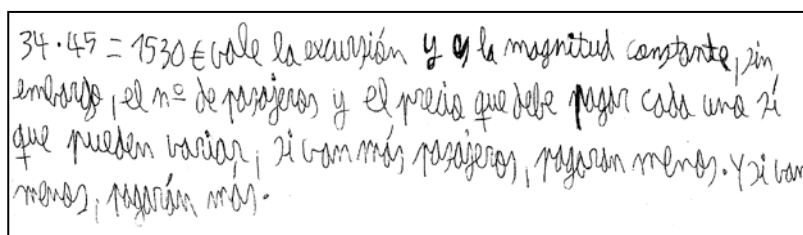 34·45 = 1530 € vale la excursión y es la magnitud constante, sin
embargo, el nº de pasajeros y el precio que debe pagar cada uno sí
que pueden variar, si van más pasajeros, pagaran menos. Y si van
menos, pagarán más.